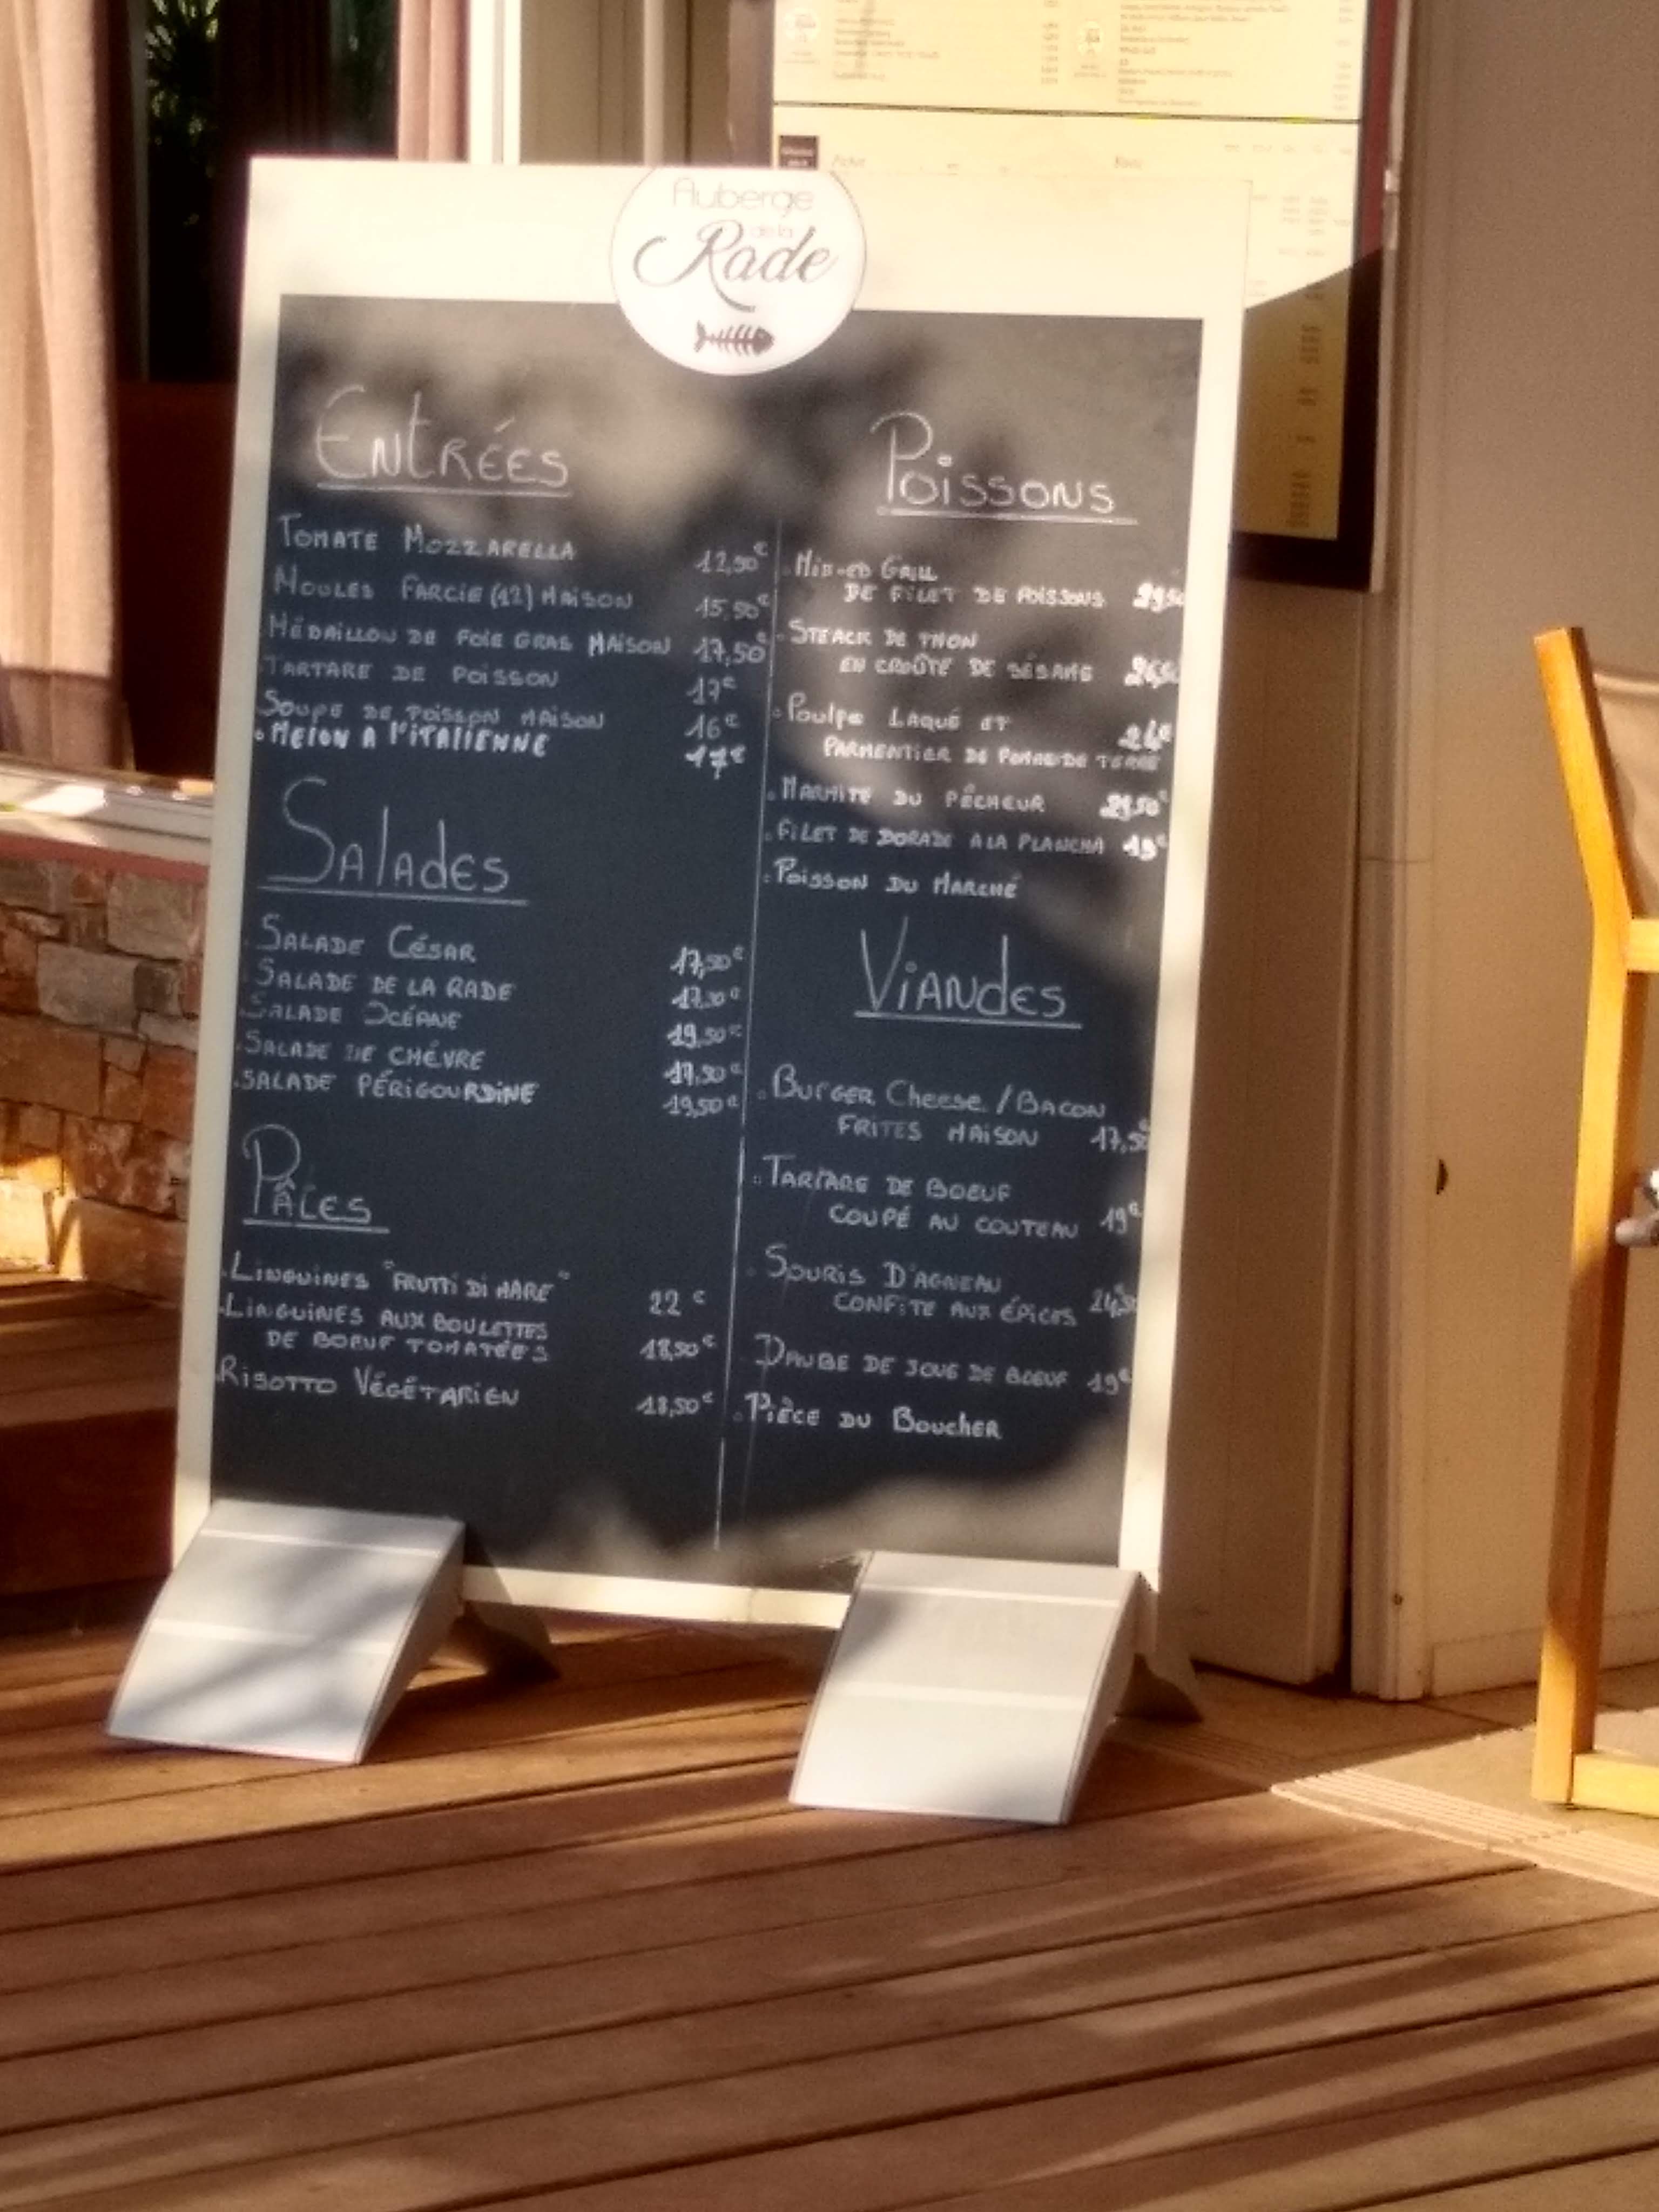 Auberge
de la
Rade
Entrées
Tomate Mozzarella 12,50€
Moules farcie (12) maison 15,50€
Médaillon de foie gras maison 17,50€
Tartare de poisson 17€
Soupe de poisson maison 16€
Melon a l'italienne 17€
Salades
Salade César 17,50€
Salade de la Rade 17,50€
Salade Océane 19,50€
Salade de chévre 17,50€
Salade Périgourdine 19,50€
Pâtes
Linguines "frutti di mare" 22€
Linguines aux boulettes
de boeuf tomatées 18,50€
Risotto Végétarien 18,50€
Poissons
Mixed Grill
de filet de poissons
Steack de thon
en croûte de sésame
Poulpe laqué et
parmentier de pomme de terre
Marmite du pêcheur
Filet de dorade a la plancha 19€
Poisson du marché
Viandes
Burger Cheese / Bacon
frites maison 17,50
Tartare de boeuf
coupé au couteau 19€
Souris d'agneau
confite aux épices
Daube de joue de boeuf 19€
Pièce du Boucher